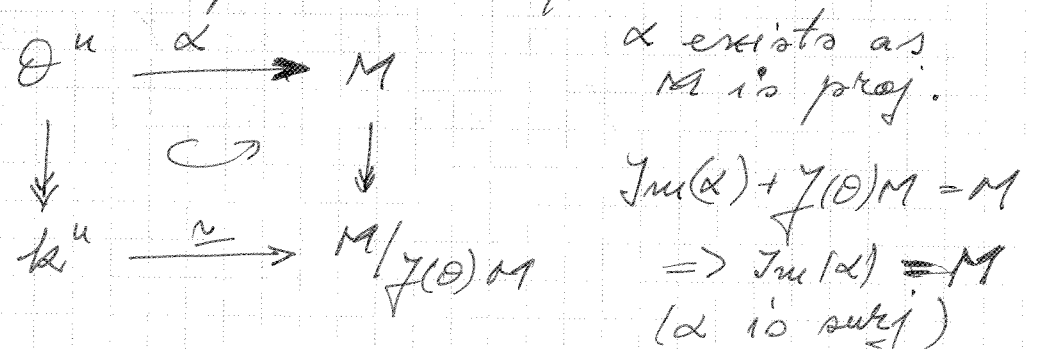 θⁿ α M
kⁿ ≃ M/J(θ)M
α exists as
M is proj.
Im(α) + J(θ)M = M
=> Im(α) = M
(α is surj)